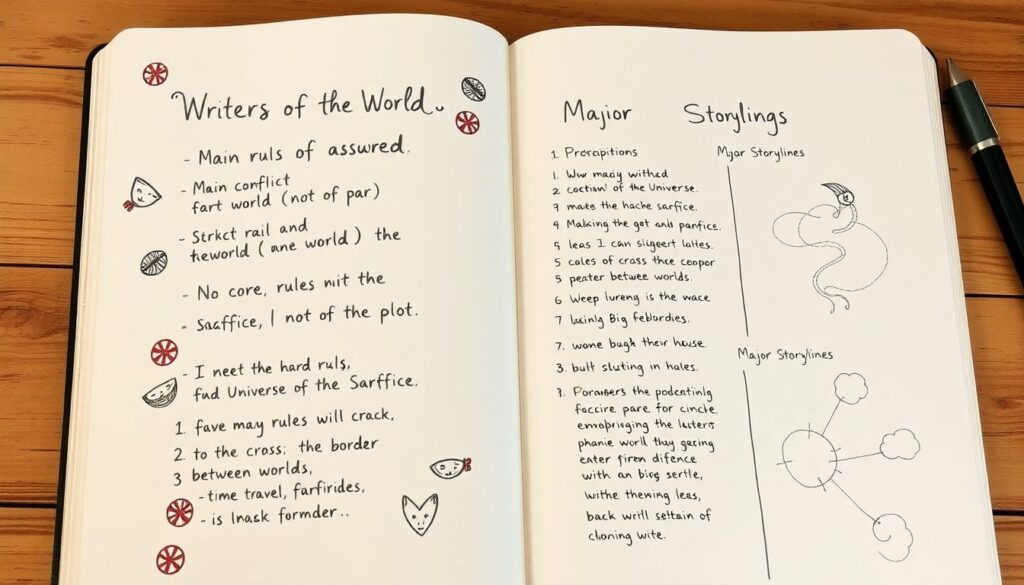 Writers of the World
- Main ruls of assured.
- Main conflict
fart world (not of par)
- Strkct rail and
theworld (ane world) the
- No core, rules mit the
- Saffice, I not of the plot.
- I neet the hard ruls,
fud Universe of the Sarffice.
1. fave may rules will crack,
2. to the cross: the border
3 between worlds,
- time travel, farfirides,
- is lnask formder..
Majior Storylings
1. Prercipitions
1. Wuw maciy withed
2 coctiwl of the Universe.
7 mats the hache sarfice.
4 Makking the got and panfice.
5 leas I can sligert lattes.
5 cales of crass thce coopor
5 peater betwee worlds.
6 Weep lureng is the wace
7 luking Big feblordies.
7. wone bugh their house
3. bult sluting in hales.
7. Foramers the podcating
faccire pare for cincle.
the lasters
phanie worll thuy gering
enter firen difence
with an big sertle,
withe thening leas,
back writl seltain of
cloning wite.
Myor Storylines
Major Storylines